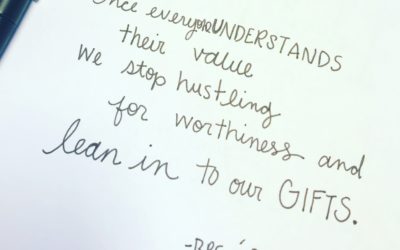 Once everyone UNDERSTANDS
their value
we stop hustling
for worthiness and
lean in to our GIFTS.